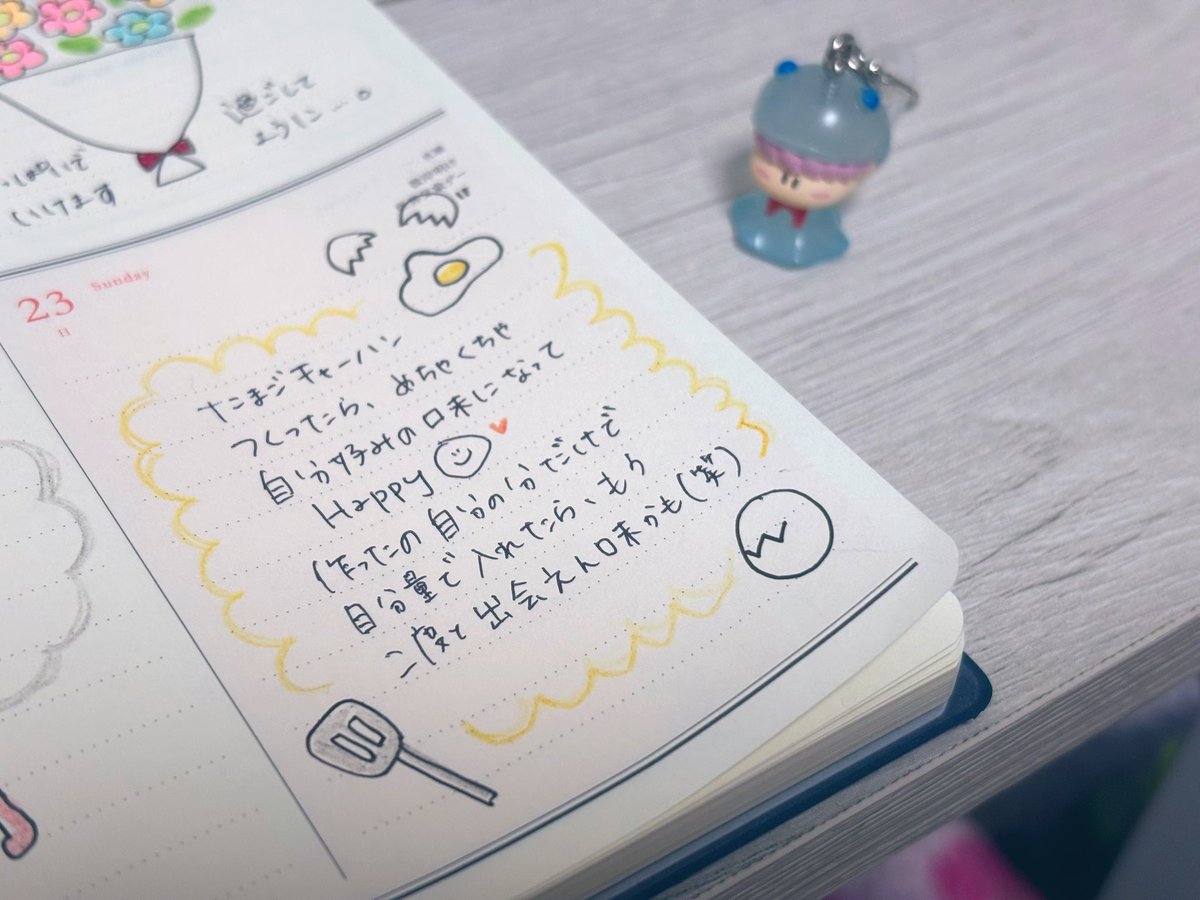 過ごして
ように…。
いけます
23
Sunday
日
たまごチャーハン
つくったら、めちゃくちゃ
自分好みの口末になって
Happy
(作ったの自分の分だけで
自分量で入れたら、もう
二度と出会えん口末かも(笑)